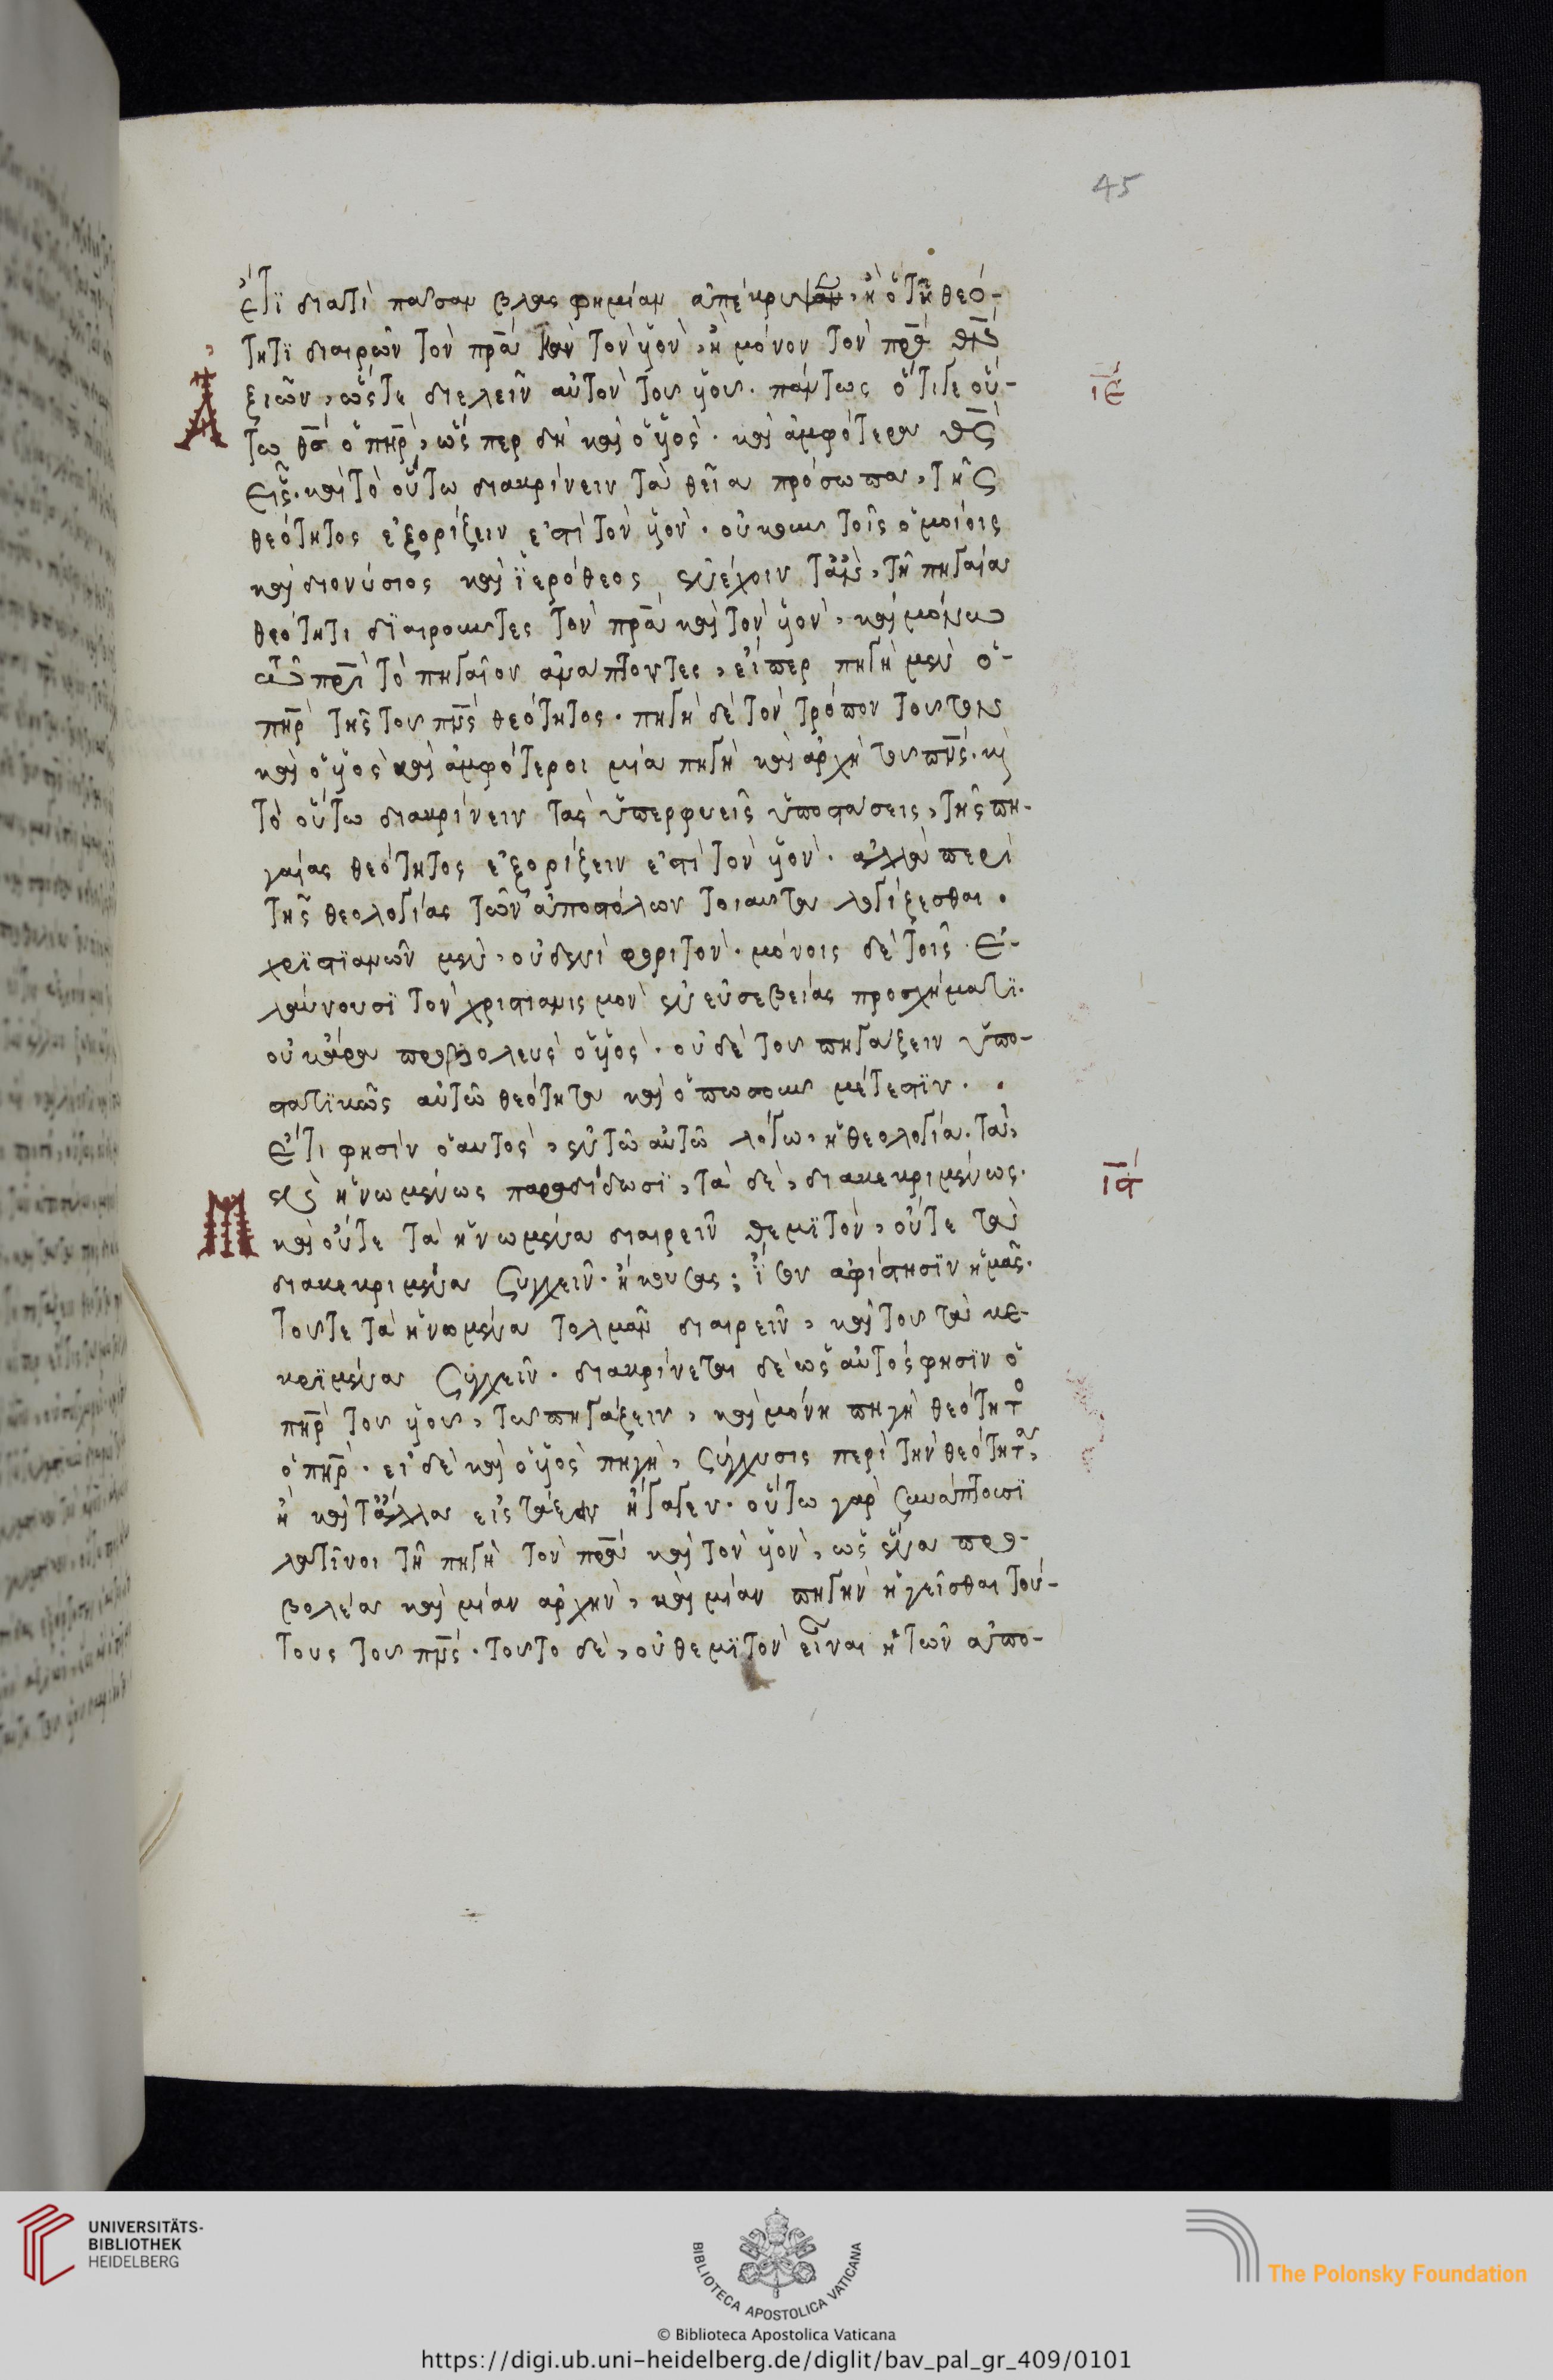 45
ἔτϊ διατὶ πᾶσαν βλασφημίαν ἀπέκρυψαν, ἢ ὁ τῇ θεό-
τητϊ διαιρῶν τὸν πρ̅α καὶ τὸν ὑὸν, ἢ μόνον τὸν πρ̅α
ξιῶν, ὥστε διελεῖν αὐτὸν τοῦ ὑοῦ. πάντως ὅτι γε οὕ-
ιε
τω θ̅ς ὁ πη̅ρ, ὥσπερ δὴ καὶ ὁ ὑὸς. καὶ ἀμφότερα θ̅ς
εἷς. καὶ τὸ οὕτω διακρίνειν τὰ θεῖα πρόσωπα, τῆς
θεότητος ἐξορίζειν ἐστὶ τὸν ὑὸν. οὐκοῦν τοῖς ὁμοίοις
καὶ διονύσιος καὶ ϊερόθεος ἐνέχοιν, τῇ πηγαία
θεότητι διαιροῦντες τὸν πρ̅α καὶ τὸν ὑὸν, καὶ μόνω
τῶ πρ̅ι τὸ πηγαῖον ἀνάπτοντες, εἴπερ πηγὴ μὲν ὁ
πη̅ρ τῆς τοῦ πν̅ς θεότητος. πηγὴ δὲ τὸν τρόπον τοῦτον
καὶ ὁ ὑὸς καὶ ἀμφότεροι μία πηγὴ καὶ ἀρχὴ τοῦ πν̅ς. κ
τὸ οὕτω διακρίνειν τὰς ὑπερφυεῖς ὑποστάσεις, τῆς πη-
γαίας θεότητος ἐξορίζειν ἐστὶ τὸν ὑὸν. ἀλλὰ περὶ
τῆς θεολογίας τῶν ἀποστόλων τοιαῦτα λογίζεσθαι.
χρϊστϊανῶν μὲν, οὐδενὶ φορητὸν. μόνοις δὲ τοῖς ἐ-
λαύνουσϊ τὸν χριστιανισμὸν ἐν εὐσεβείας προσχήματϊ.
οὐκ ἄρα προβολεὺς ὁ ὑὸς. οὐδὲ τοῦ πηγάζειν ὑπο-
στατϊκῶς αὐτῶ θεότητα καὶ ὁπωσοῦν μέτεστϊν.
ἔτι φησὶν ὁ αυτὸς, ἐν τῶ αὐτῶ λόγω, ἡ θεολογία. τὰ
μὲν ἡνωμένως παραδίδωσϊ, τὰ δὲ, διακεκριμένως.
ιϛ
καὶ οὔτε τὰ ἡνωμένα διαιρεῖν θεμϊτὸν, οὔτε τὰ
διακεκριμένα συγχεῖν. ἀφίστησϊν ἡμᾶς.
τοῦτε τὰ ἡνωμένα τολμᾶν διαιρεῖν, καὶ τοῦ τὰ κε-
κρϊμένα συγχεῖν. διακρίνεται δὲ ὡς αὐτός φησϊν ὁ
πη̅ρ τοῦ ὑοῦ, τῶ πηγάζειν, καὶ μόνη πηγὴ θεότητο
ὁ πη̅ρ. εἰ δὲ καὶ ὁ ὑὸς πηγὴ, σύγχυσις περὶ τὴν θεότητα,
ἢ καὶ τἄλλα εἰς ἤγαγεν. οὕτω γὰρ συνάπτουσϊ
λατῖνοι τῇ πηγῇ τὸν πρ̅α καὶ τὸν ὑὸν, ὡς ἕνα προ-
βολέα καὶ μίαν ἀρχὴν, καὶ μίαν πηγὴν ἡγεῖσθαι τού-
τους τοῦ πν̅ς. τοῦτο δὲ, οὐ θεμϊτὸν εἶναι ἡ τῶν ἀπο-
UNIVERSITÄTS-
BIBLIOTHEK
HEIDELBERG
BIBLIOTECA APOSTOLICA VATICANA
The Polonsky Foundation
© Biblioteca Apostolica Vaticana
https://digi.ub.uni-heidelberg.de/diglit/bav_pal_gr_409/0101